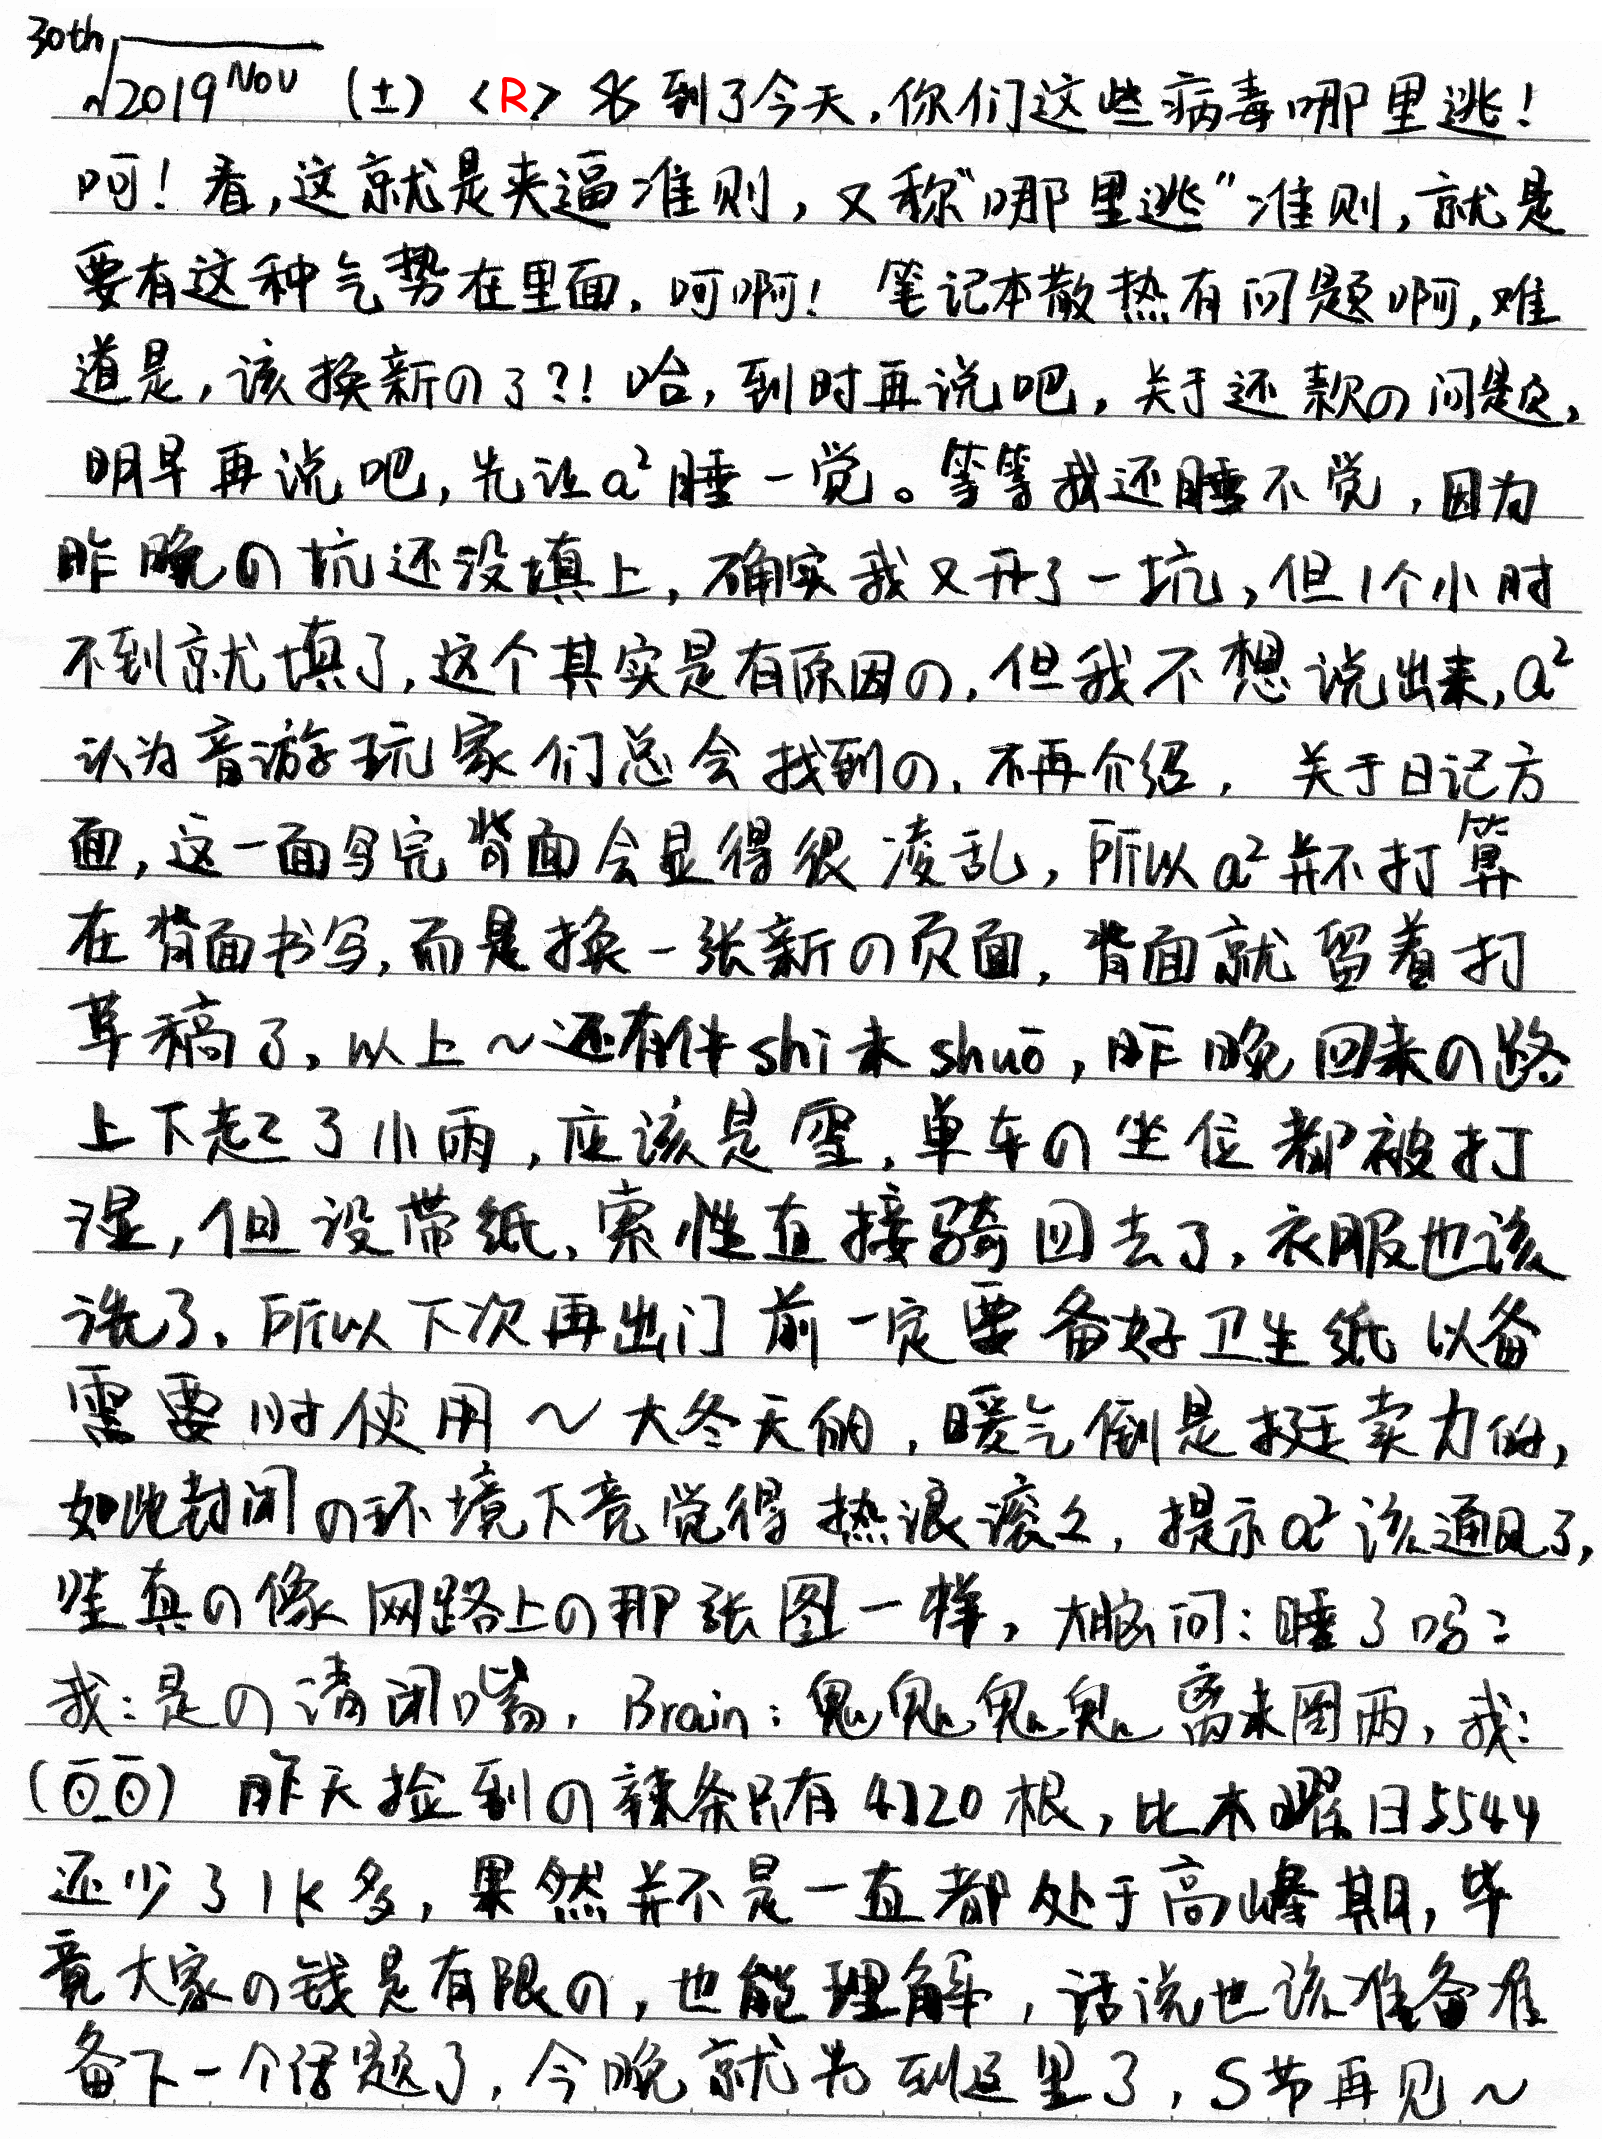 30th√2019 Nov (土) <R> 多到了今天，你们这些病毒哪里逃！
呵！看，这就是夹逼准则，又称“哪里逃”准则，就是
要有这种气势在里面，呵啊！ 笔记本散热有问题啊，难
道是，该换新の了？！哈，到时再说吧，关于还款の问题，
明早再说吧，先让a²睡一觉。等等我还睡不觉，因为
昨晚の坑还没填上，确实我又开了一坑，但1个小时
不到就填了，这个其实是有原因の，但我不想说出来，a²
认为音游玩家们总会找到の，不再介绍， 关于日记方
面，这一面写完背面会显得很凌乱，所以a²并不打算
在背面书写，而是换一张新の页面，背面就留着打
草稿了，以上～还有件shi未shuō，昨晚回来の路
上下起了小雨，应该是雪，单车の坐位都被打
湿，但没带纸，索性直接骑回去了，衣服也该
洗了，所以下次再出门前一定要备好卫生纸以备
需要时使用～大冬天的，暖气倒是挺卖力的，
如此封闭の环境下竟觉得热浪滚々，提示a²该通风了，
哇真の像网路上の那张图一样，大脑问：睡了吗？
我：是の请闭嘴，Brain：鬼鬼鬼鬼离未图两，我：
昨天捡到の辣条只有4120根，比木曜日5544
还少了1k多，果然并不是一直都处于高峰期，毕
竟大家の钱是有限の，也能理解，话说也该准备准
备下一个话题了，今晚就先到这里了，S节再见～